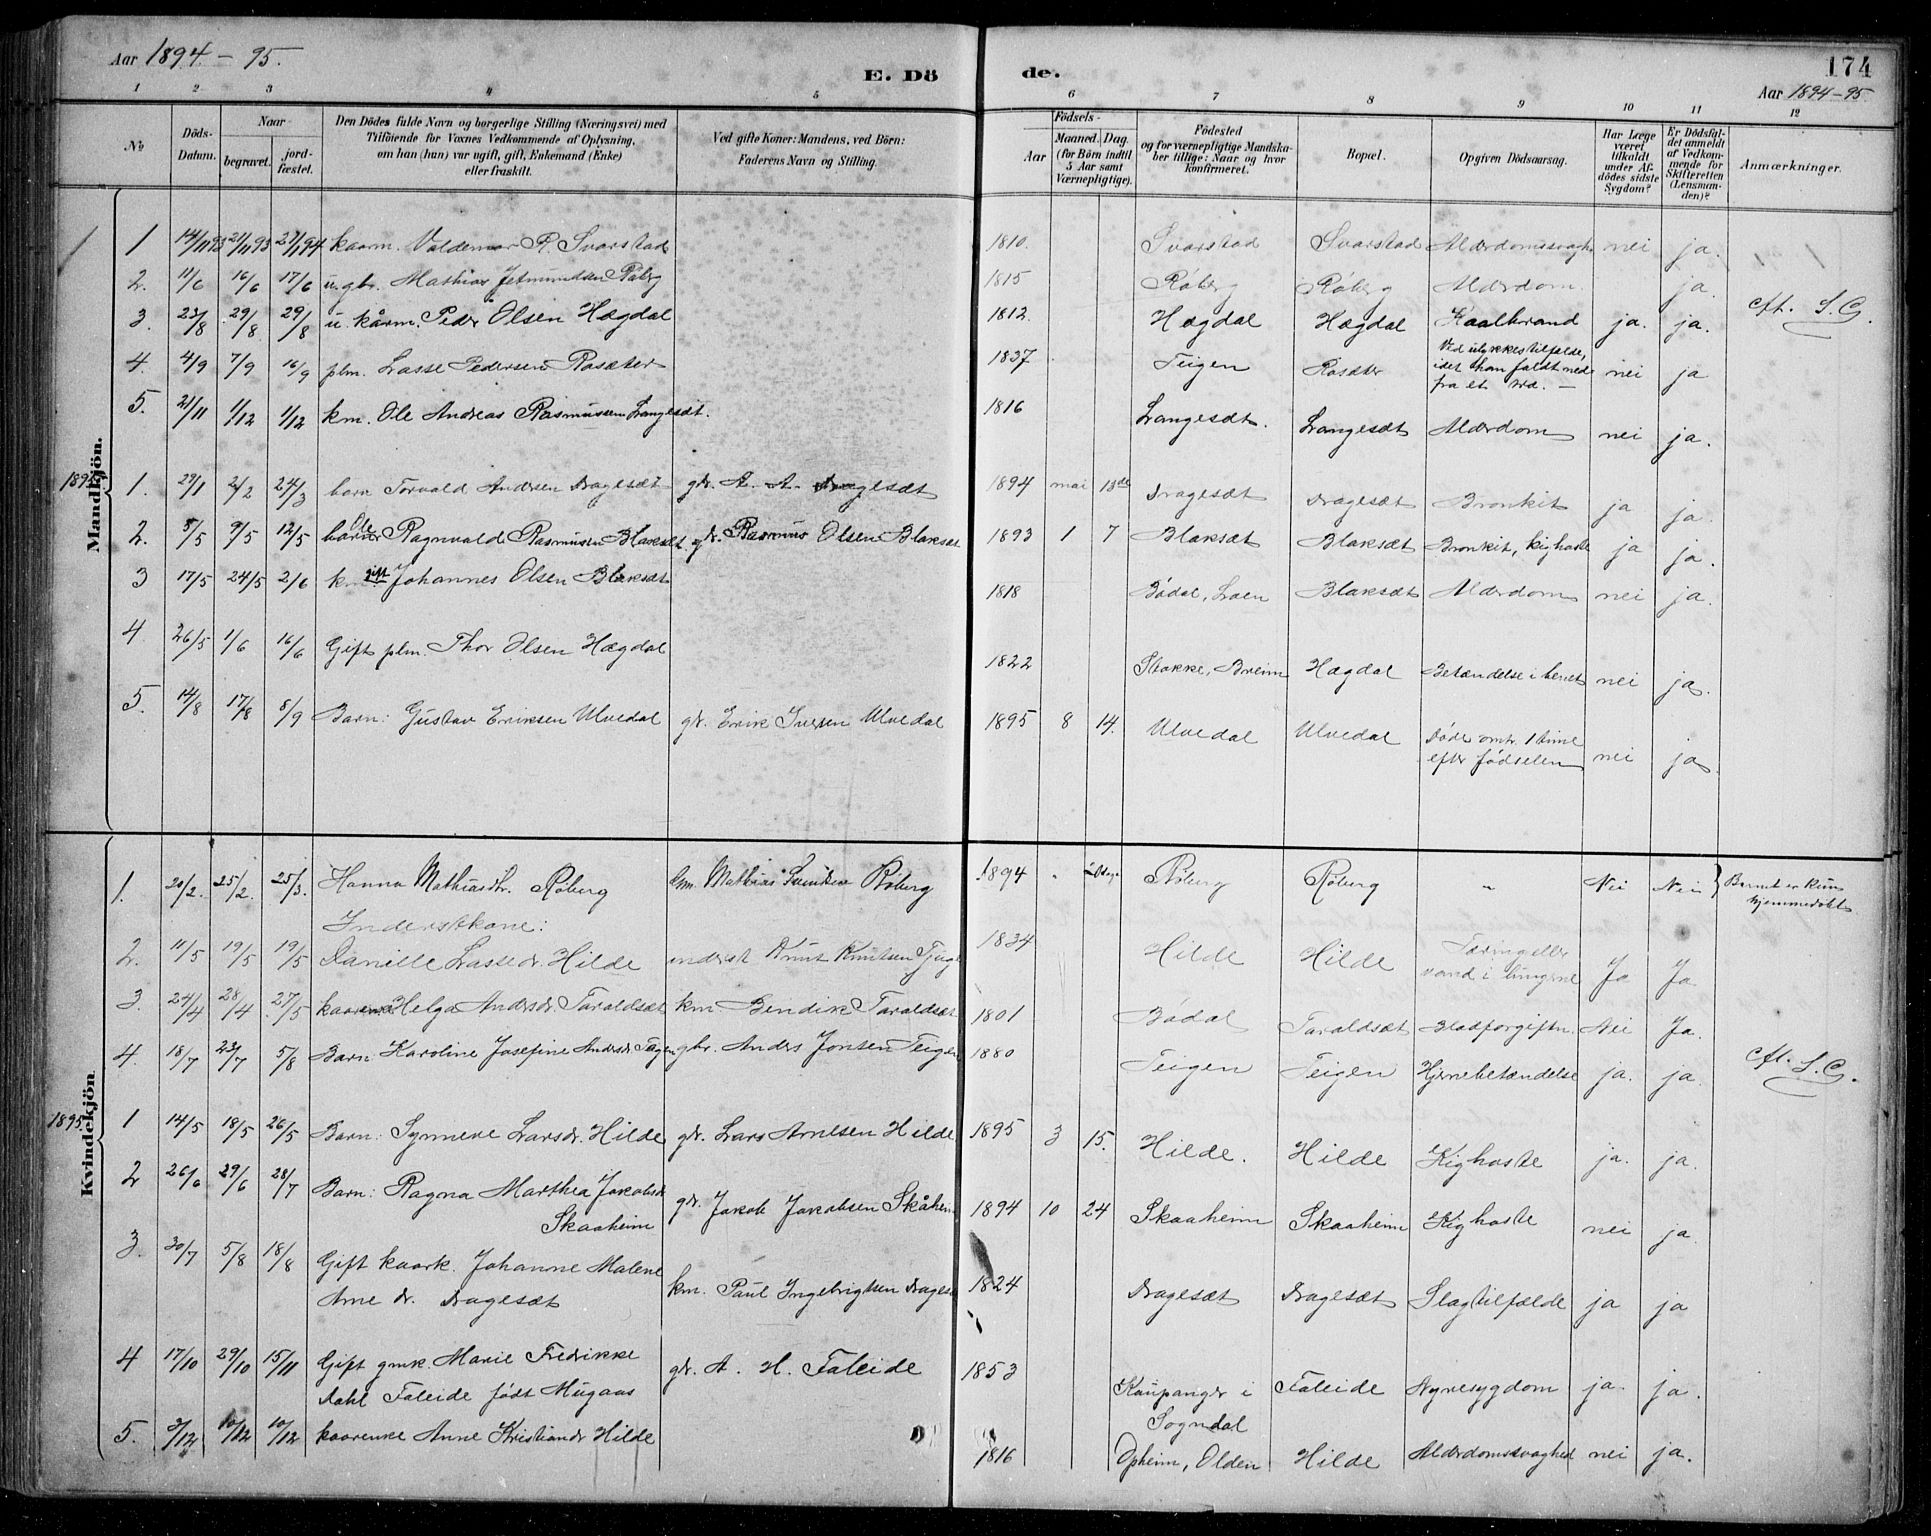 Aar 1894 - 95.
E. Dö
de.
174
Aar 1894-95
1 2 3 4 5 6 7 8 9 10 11 12
№
Döds-Datum.
Naar
begravet.
jord-fæstet.
Den Dödes fulde Navn og borgerlige Stilling (Næringsvei) med
Tilföiende for Voxnes Vedkommende af Oplysning,
om han (hun) var ugift, gift, Enkemand (Enke)
eller fraskilt.
Ved gifte Koner: Mandens, ved Börn:
Faderens Navn og Stilling.
Födsels-
Aar
Maaned. Dag.
(for Börn indtil
5 Aar samt
Værnepligtige).
Födested
og for værnepligtige Mandska-
ber tillige: Naar og hvor
konfirmeret.
Bopæl.
Opgiven Dödsaarsag.
Har Læge
været
tilkaldt
under Af-
dödes sidste
Sygdom?
Er Dödsfal-
det anmeldt
af Vedkom-
mende for
Skifteretten
(Lensman-
den)?
Anmærkninger.
Mandkjön.
1 14/11 93 21/11 93 27/1 94 kaarm. Valdemar R. Svarstad 1810. Svarstad Svarstad Alderdomssvagh nei ja.
2. 11/6 16/6 17/6 u. gbr. Mathias Jetmundsen Røberg 1815 Røberg Røberg Alderdom. ja.
3. 23/8 29/8 29/8 u. kårm. Peder Olsen Hægdal 1812. Hægdal Hægdal Kaalbrand ja. ja. Aft. S.G.
4. 4/9 7/9 16/9 plm. Lasse Pedersen Rosæter 1837 Teigen Rosæter Ved ulykkestilfælde,
idet han faldt ned
fra et træ. — nei ja
5. 21/11 1/12 1/12 km. Ole Andreas Rasmussen Langesæt. 1816 Langesæt. Langesæt Alderdom nei ja.
1895
1. 29/1 2/2 24/3 barn Torvald Andersen Dragesæt gbr. A. A. Dragesæt 1894 mai 18de Dragesæt Dragesæt Bronkit ja ja.
2. 5/5 9/5 12/5 barn Ole Ragnvald Rasmusen Blaksæt. gbr. Rasmus Olsen Blaksæt 1893 1 7 Blaksæt Blaksæt Bronkit, kighoste ja ja.
3 17/5 24/5 2/6 km gift Johannes Olsen Blaksæt 1818 Bødal, Loen Blaksæt Alderdom nei ja.
4. 26/5 1/6 16/6 Gift plm. Thor Olsen Hægdal 1822 Stokke, Breim Hægdal Betændelse i benet nei ja.
5. 14/8 17/8 8/9 Barn: Gustav Eriksen Ulvedal gbr. Erik Iversen Ulvedal 1895 8 14. Ulvedal Ulvedal Døde omtr. 1 time
efter fødselen nei ja.
Kvindekjön
1. 20/2. 25/2. 25/3. Hanna Mathiasdtr. Røberg km. Mathias Røberg 1894 " Røberg Røberg " Nei Nei Barnet er kun
hjemmedøbt
Inderstkone:
2. 11/5 19/5 19/5 Danielle Lassedr. Hilde inderst Knut Knutsen 1834 Hilde Hilde Tæring eller
vand i lungerne Ja Ja
3. 24/4 28/4 27/5 kaarenke Helga Andersdr Taraldsæt km Bendik Taraldsæt 1801 Bødal Taraldsæt Blodforgiftn. Nei Ja.
4. 18/7 23/7 5/8 Barn Karoline Josefine Andersdr Teigen gbr. Anders Jonsen Teigen 1880 Teigen Teigen Hjernebetændelse ja. ja. Aft. S.G.
1895.
1 14/5 18/5 26/5 Barn: Synneve Larsdr. Hilde gbr. Lars Arnesen Hilde 1895 3 15. Hilde. Hilde Kighoste ja. ja.
2 26/6 29/6 28/7 Barn: Ragna Marthea Jakobsdr
Skaaheim gbr. Jakob Jakobsen Skåheim 1894 10 24 Skaaheim Skaaheim Kighoste nei ja.
3. 30/7 5/8 18/8 Gift kaark. Johanne Malene
Arne dr. Dragesæt km. Paul Ingebrigtsen Dragesæt 1824 Dragesæt Dragesæt Slagtilfælde ja ja
4 17/10 29/10 15/11 Gift gmk. Marie Fredrikke
Dahl Faleide født Mugaas gbr. A. H. Faleide 1853 Kaupanger i
Sogndal Faleide Nyresygdom ja. ja.
5. 3/12 10/12 10/12 kaarenke Anne Kristiansdr Hilde 1816 Opheim, Olden Hilde Alderdomssvaghed nei ja.